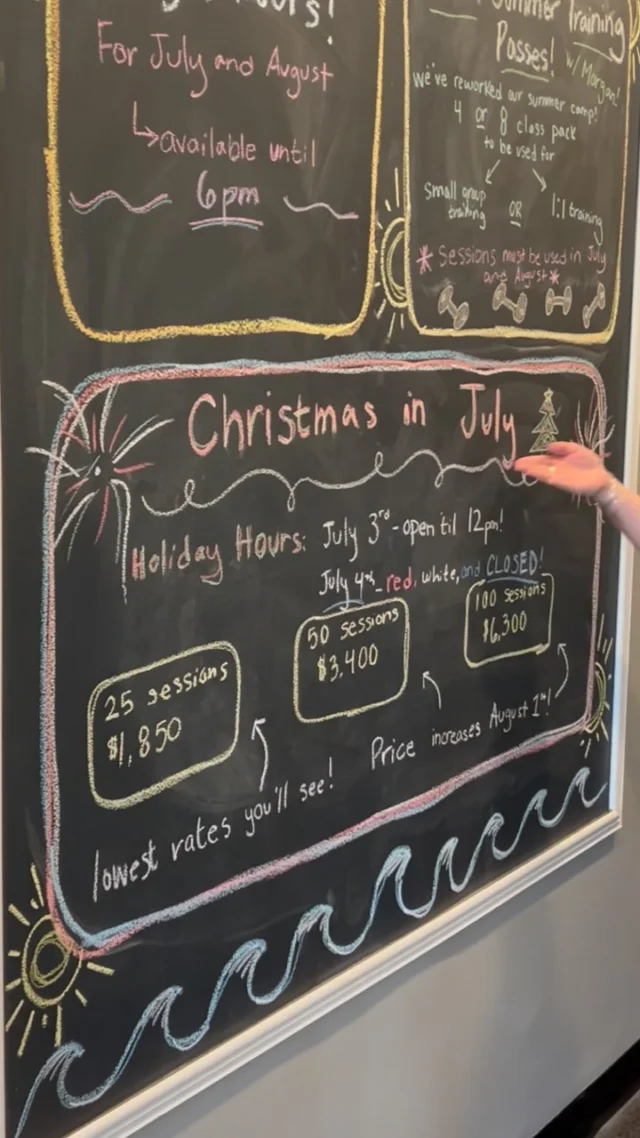 Hours!
For July and August
available until
6pm
Summer Training
Passes!
w/ Morgan!
we've reworked our summer camp!
4 or 8 class pack
to be used for
small group
training
OR
1:1 training
* Sessions must be used in July
and August *
Christmas in July
Holiday Hours: July 3rd - open til 12pm!
July 4th - red, white, and CLOSED!
25 sessions
$1,850
50 sessions
$3,400
100 sessions
$6,300
lowest rates you'll see!
Price increases August 1st!